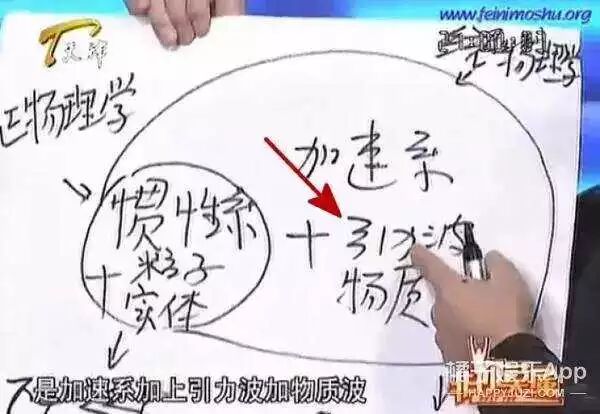 www.feinimoshu.org
天津
物理学
E物理学
加速系
惯性系
+引力波
+粒子
物质
实体
是加速系加上引力波加物质波
橘子娱乐App
HAPPYJUZI.COM